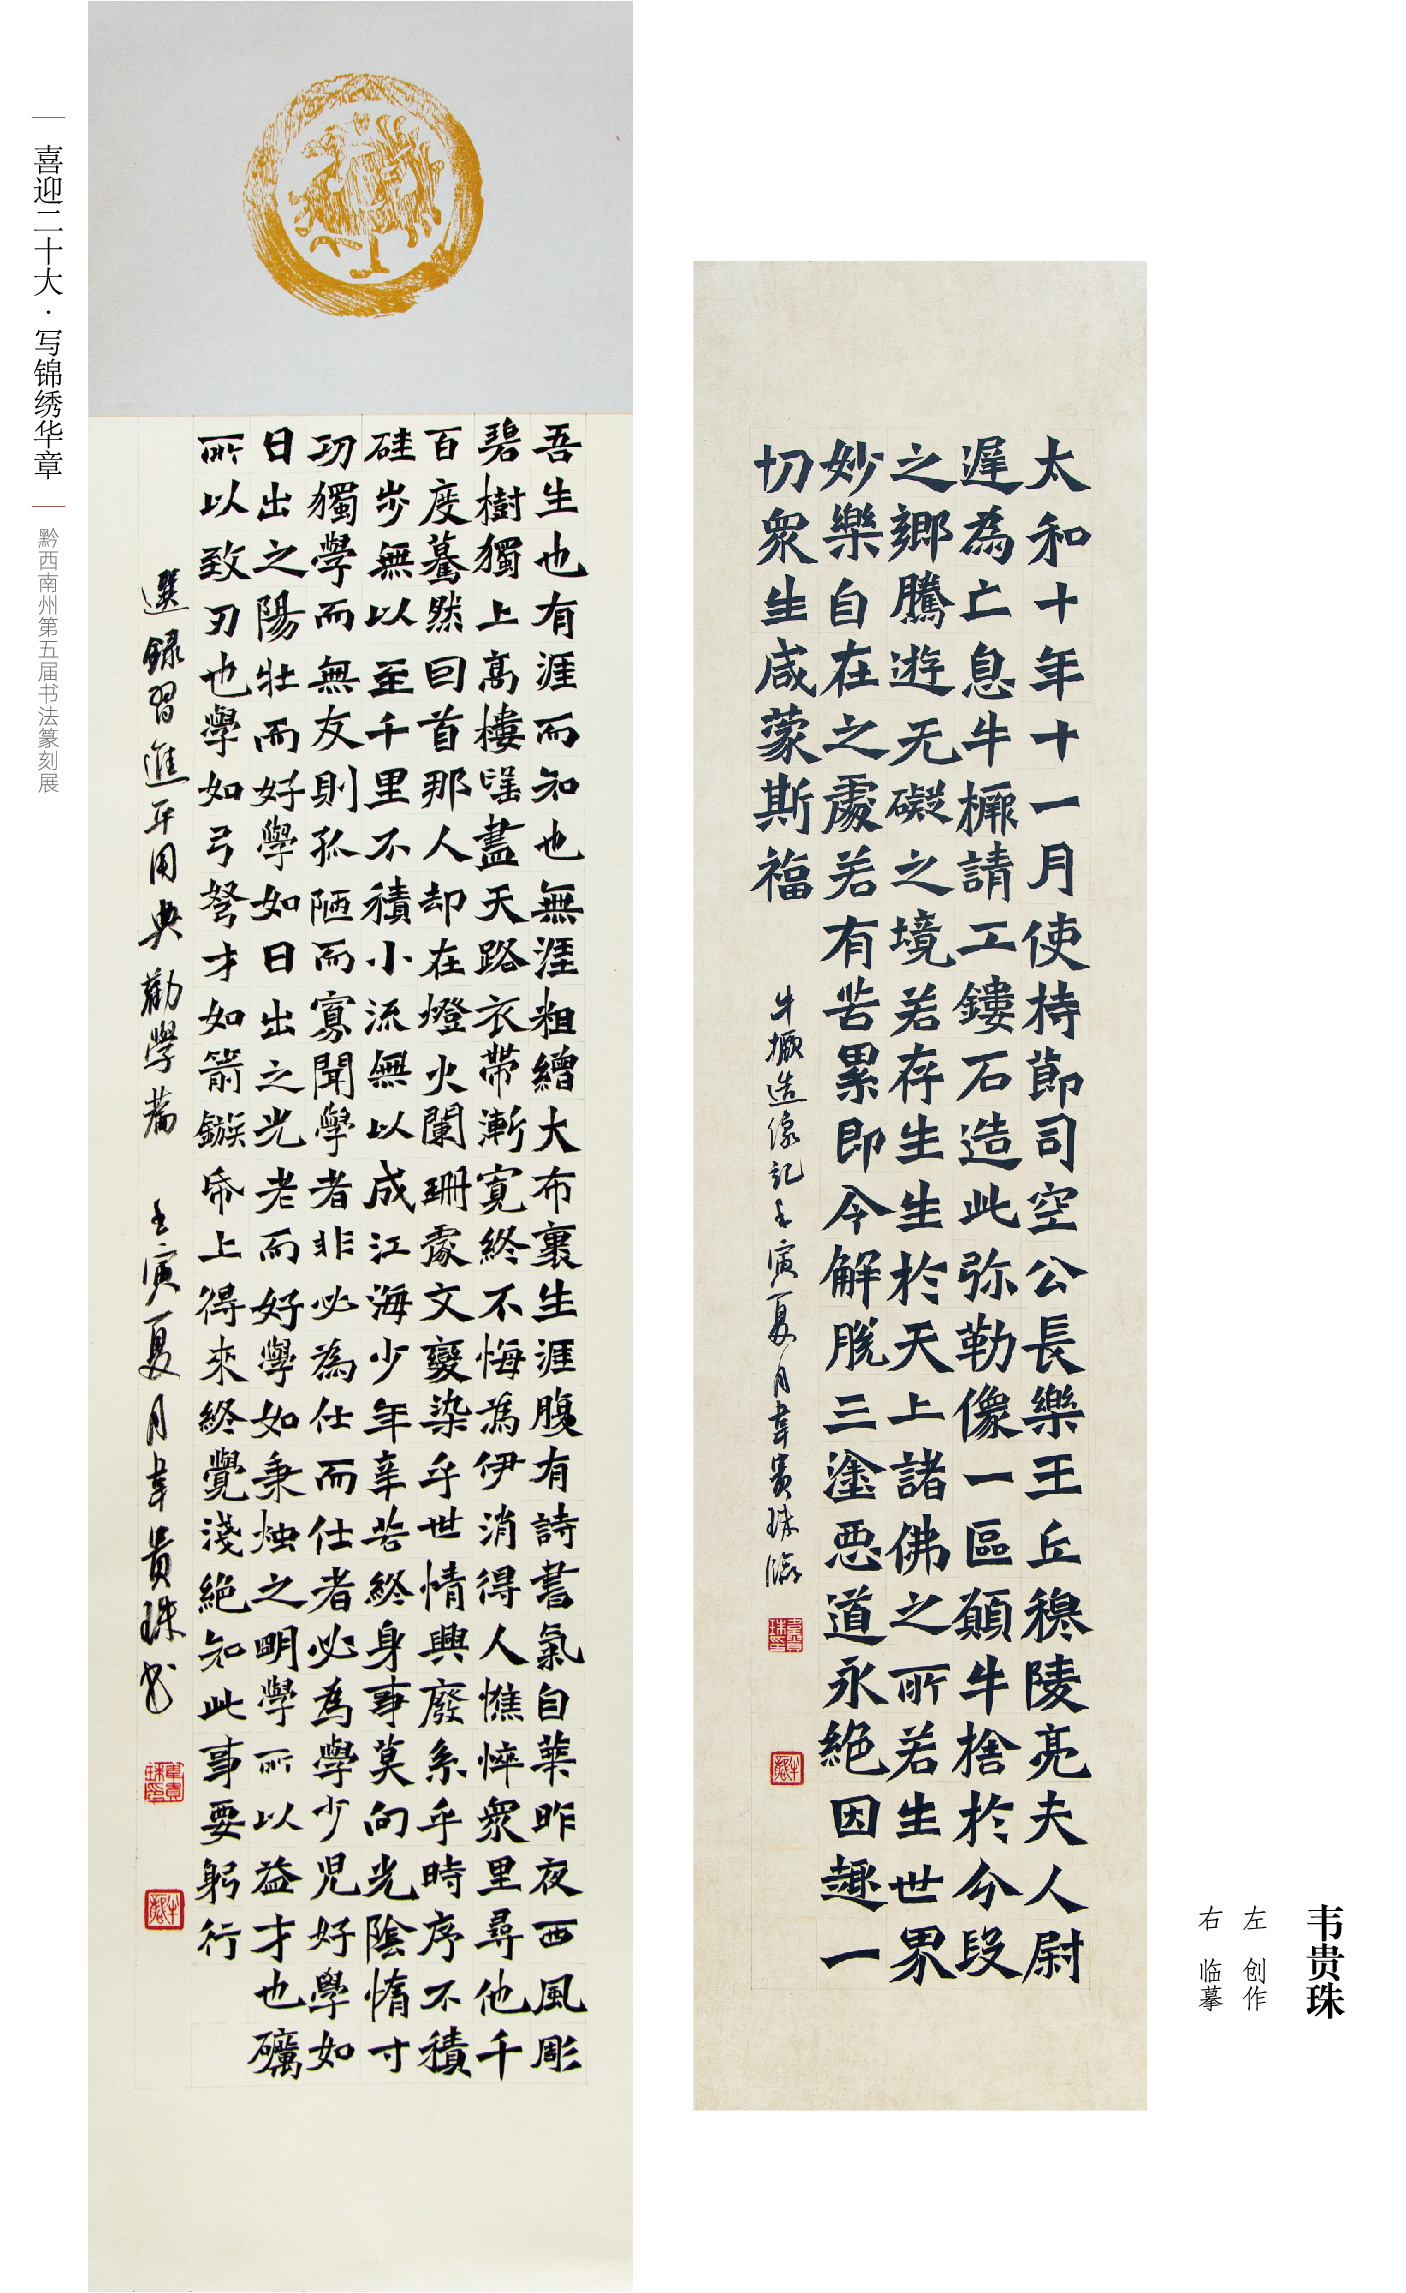 喜迎二十大·写锦绣华章
黔西南州第五届书法篆刻展
吾生也有涯而知也無涯粗繒大布裹生涯腹有詩書氣自華昨夜西風彫
碧樹獨上高樓望盡天路衣帶漸寬終不悔為伊消得人憔悴眾里尋他千
百度驀然回首那人却在燈火闌珊處文變染乎世情興廢系乎時序不積
硅步無以至千里不積小流無以成江海少年辛苦終身事莫向光陰惰寸
功獨學而無友則孤陋而寡聞學者非必為仕而仕者必為學少児好學如
日出之陽壯而好學如日出之光老而好學如秉燭之明學所以益才也礪
所以致刃也學如弓弩才如箭鏃帋上得來終覺淺絕知此事要躬行
選録習進平用典勸學篇 壬寅夏月韋貴珠书
太和十年十一月使持節司空公長樂王丘穆陵亮夫人尉
遲為亡息牛橛請工鏤石造此弥勒像一區願牛捨於分段
之鄉騰遊无礙之境若存生生於天上諸佛之所若生世界
妙樂自在之處若有苦累即令解脫三塗惡道永絕因趣一
切眾生咸蒙斯福
牛橛造像記壬寅夏月韋貴珠臨
韦贵珠
左 创作
右 临摹